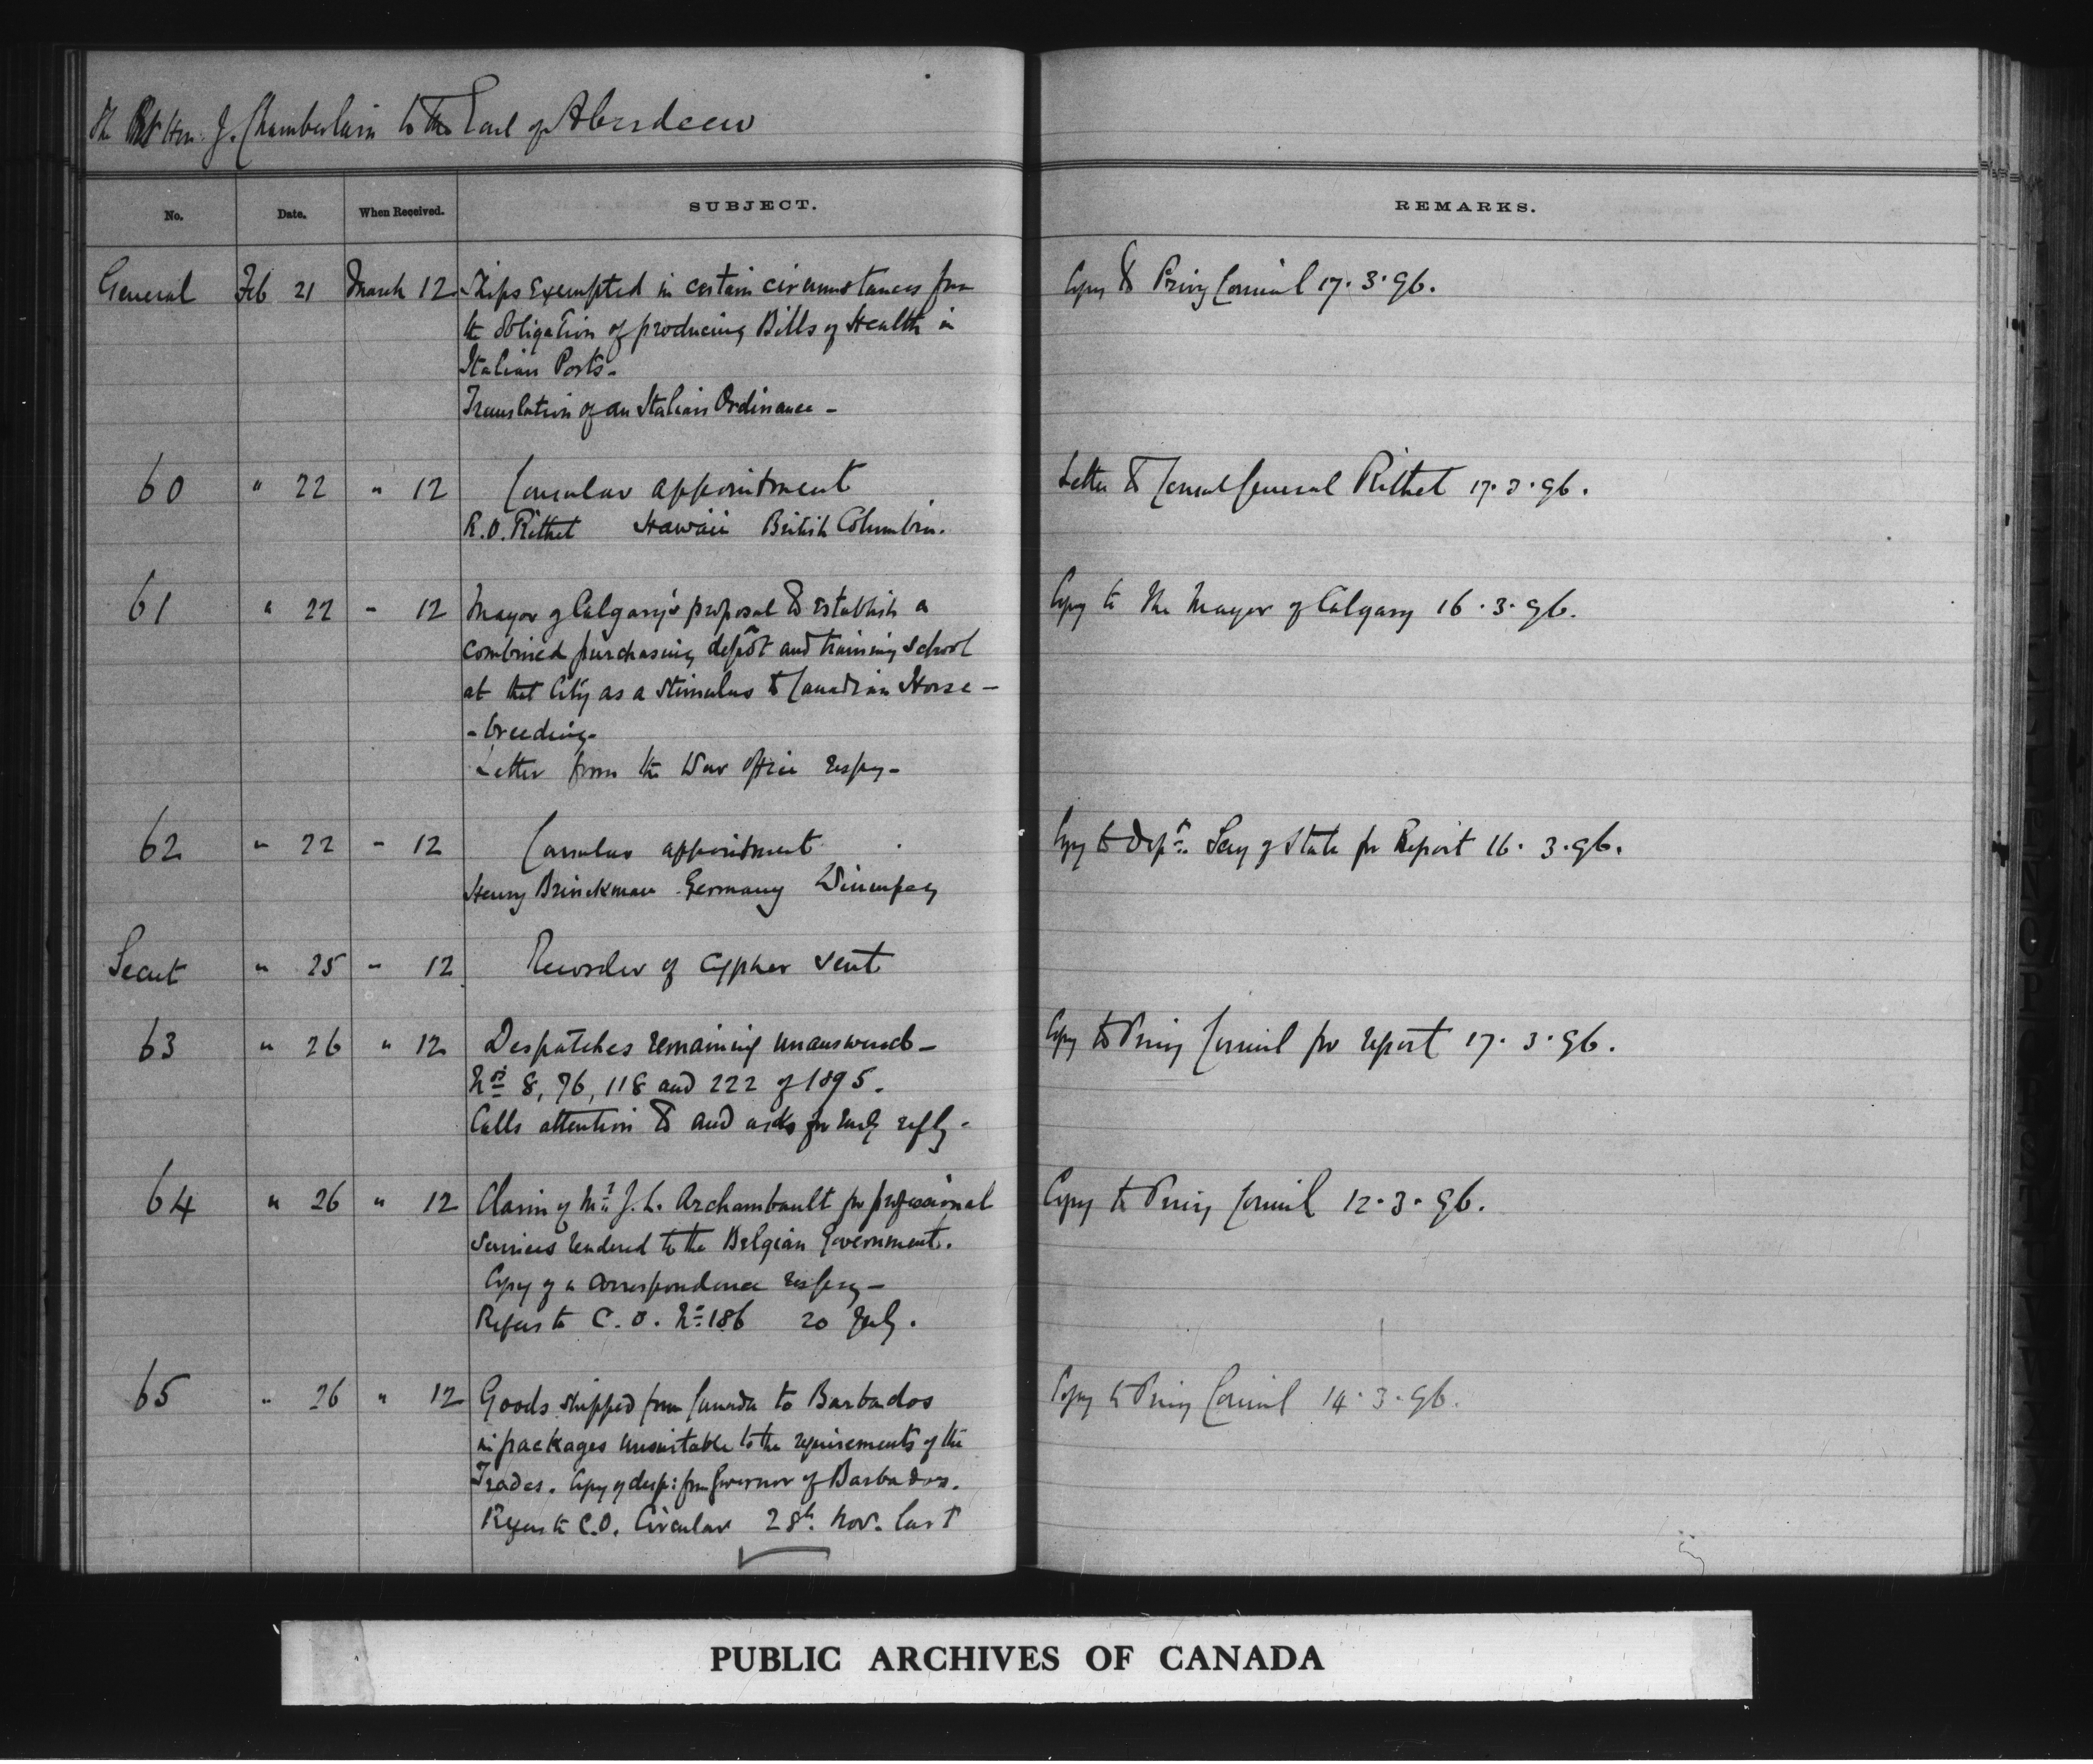 The Rt Hon. J. Chamberlain to the Earl of Aberdeen
No. Date. When Received. SUBJECT. REMARKS.
General Feb 21 March 12 Ships exempted in certain circumstances from Copy to Privy Council 17.3.96.
the obligation of producing Bills of Health in
Italian Ports.
Translation of an Italian Ordinance -
60 " 22 " 12 Consular appointment Letter to Consul General Rithet 17.3.96.
R.O. Rithet Hawaii British Columbia.
61 " 22 - 12 Mayor of Calgary's proposal to establish a Copy to the Mayor of Calgary 16.3.96.
combined purchasing depôt and training school
at that City as a stimulus to Canadian Horse -
- breeding -
Letter from the War Office respg -
62 " 22 - 12 Consular appointment Copy to Dept. Secy of State for Report 16.3.96.
Henry Brinckman Germany Winnipeg
Secret " 25 - 12 Recorder of cypher sent
63 " 26 " 12 Despatches remaining unanswered - Copy to Privy Council for report 17.3.96.
Nos 8, 76, 118 and 222 of 1895.
Calls attention to and asks for early reply -
64 " 26 " 12 Claim of Mr J. L. Archambault for professional Copy to Privy Council 12.3.96.
services rendered to the Belgian Government.
Copy of a correspondence respg -
Refers to C.O. No 186 20 July.
65 " 26 " 12 Goods shipped from Canada to Barbados Copy to Privy Council 14.3.96.
in packages unsuitable to the requirements of the
Trades. Copy of desp: from Governor of Barbados.
Refers to C.O. Circular 28th Nov. last
PUBLIC ARCHIVES OF CANADA